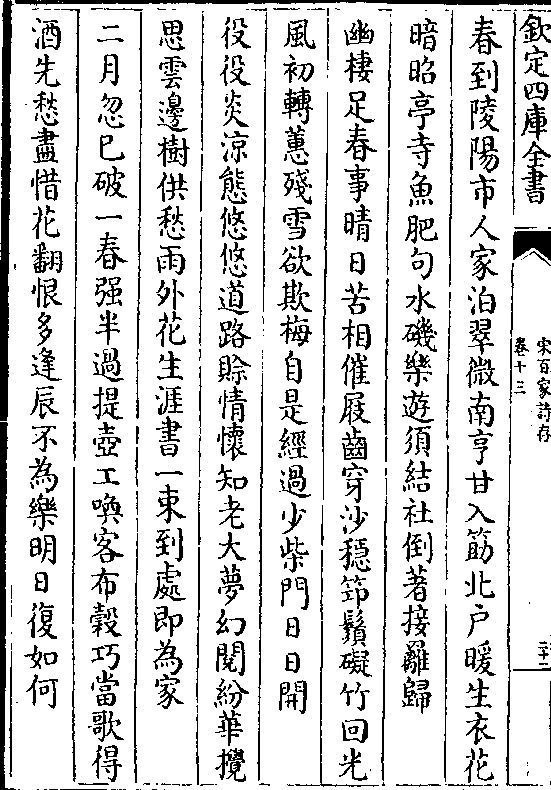 欽定四庫全書
宋百家詩存
卷十三
春到陵陽市人家泊翠微南亨甘入筯北户暖生衣花
暗昭亭寺魚肥句水磯樂遊須結社倒著接䍦歸
幽棲足春事晴日苦相催屐齒穿沙穩笻鬚礙竹回光
風初轉蕙殘雪欲欺梅自是經過少柴門日日開
役役炎涼態悠悠道路賒情懷知老大夢幻閱紛華攪
思雲邊樹供愁雨外花生涯書一束到處即為家
二月忽已破一春强半過提壺工喚客布穀巧當歌得
酒先愁盡惜花翻恨多逢辰不為樂明日復如何